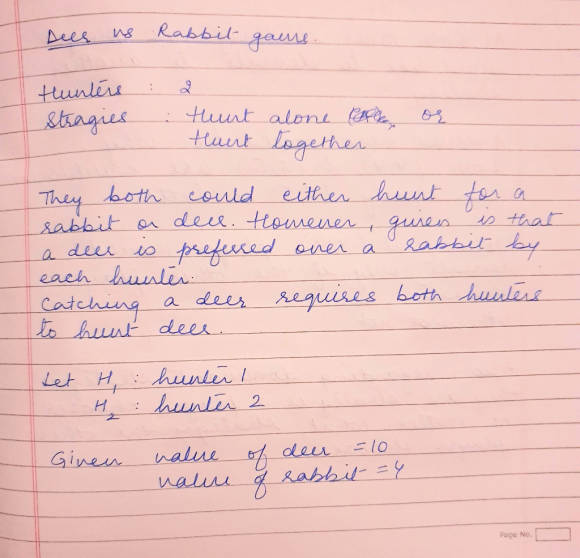 Deer vs Rabbit game.
Hunters : 2
Stragies : Hunt alone or
Hunt together
They both could either hunt for a
rabbit or deer. However, given is that
a deer is preferred over a rabbit by
each hunter.
Catching a deer requires both hunters
to hunt deer.
Let H₁ : hunter 1
H₂ : hunter 2
Given value of deer = 10
value of rabbit = 4
Page No.